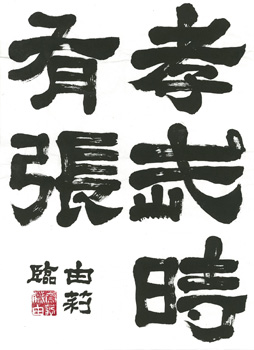 孝武時
有張
由莉
臨